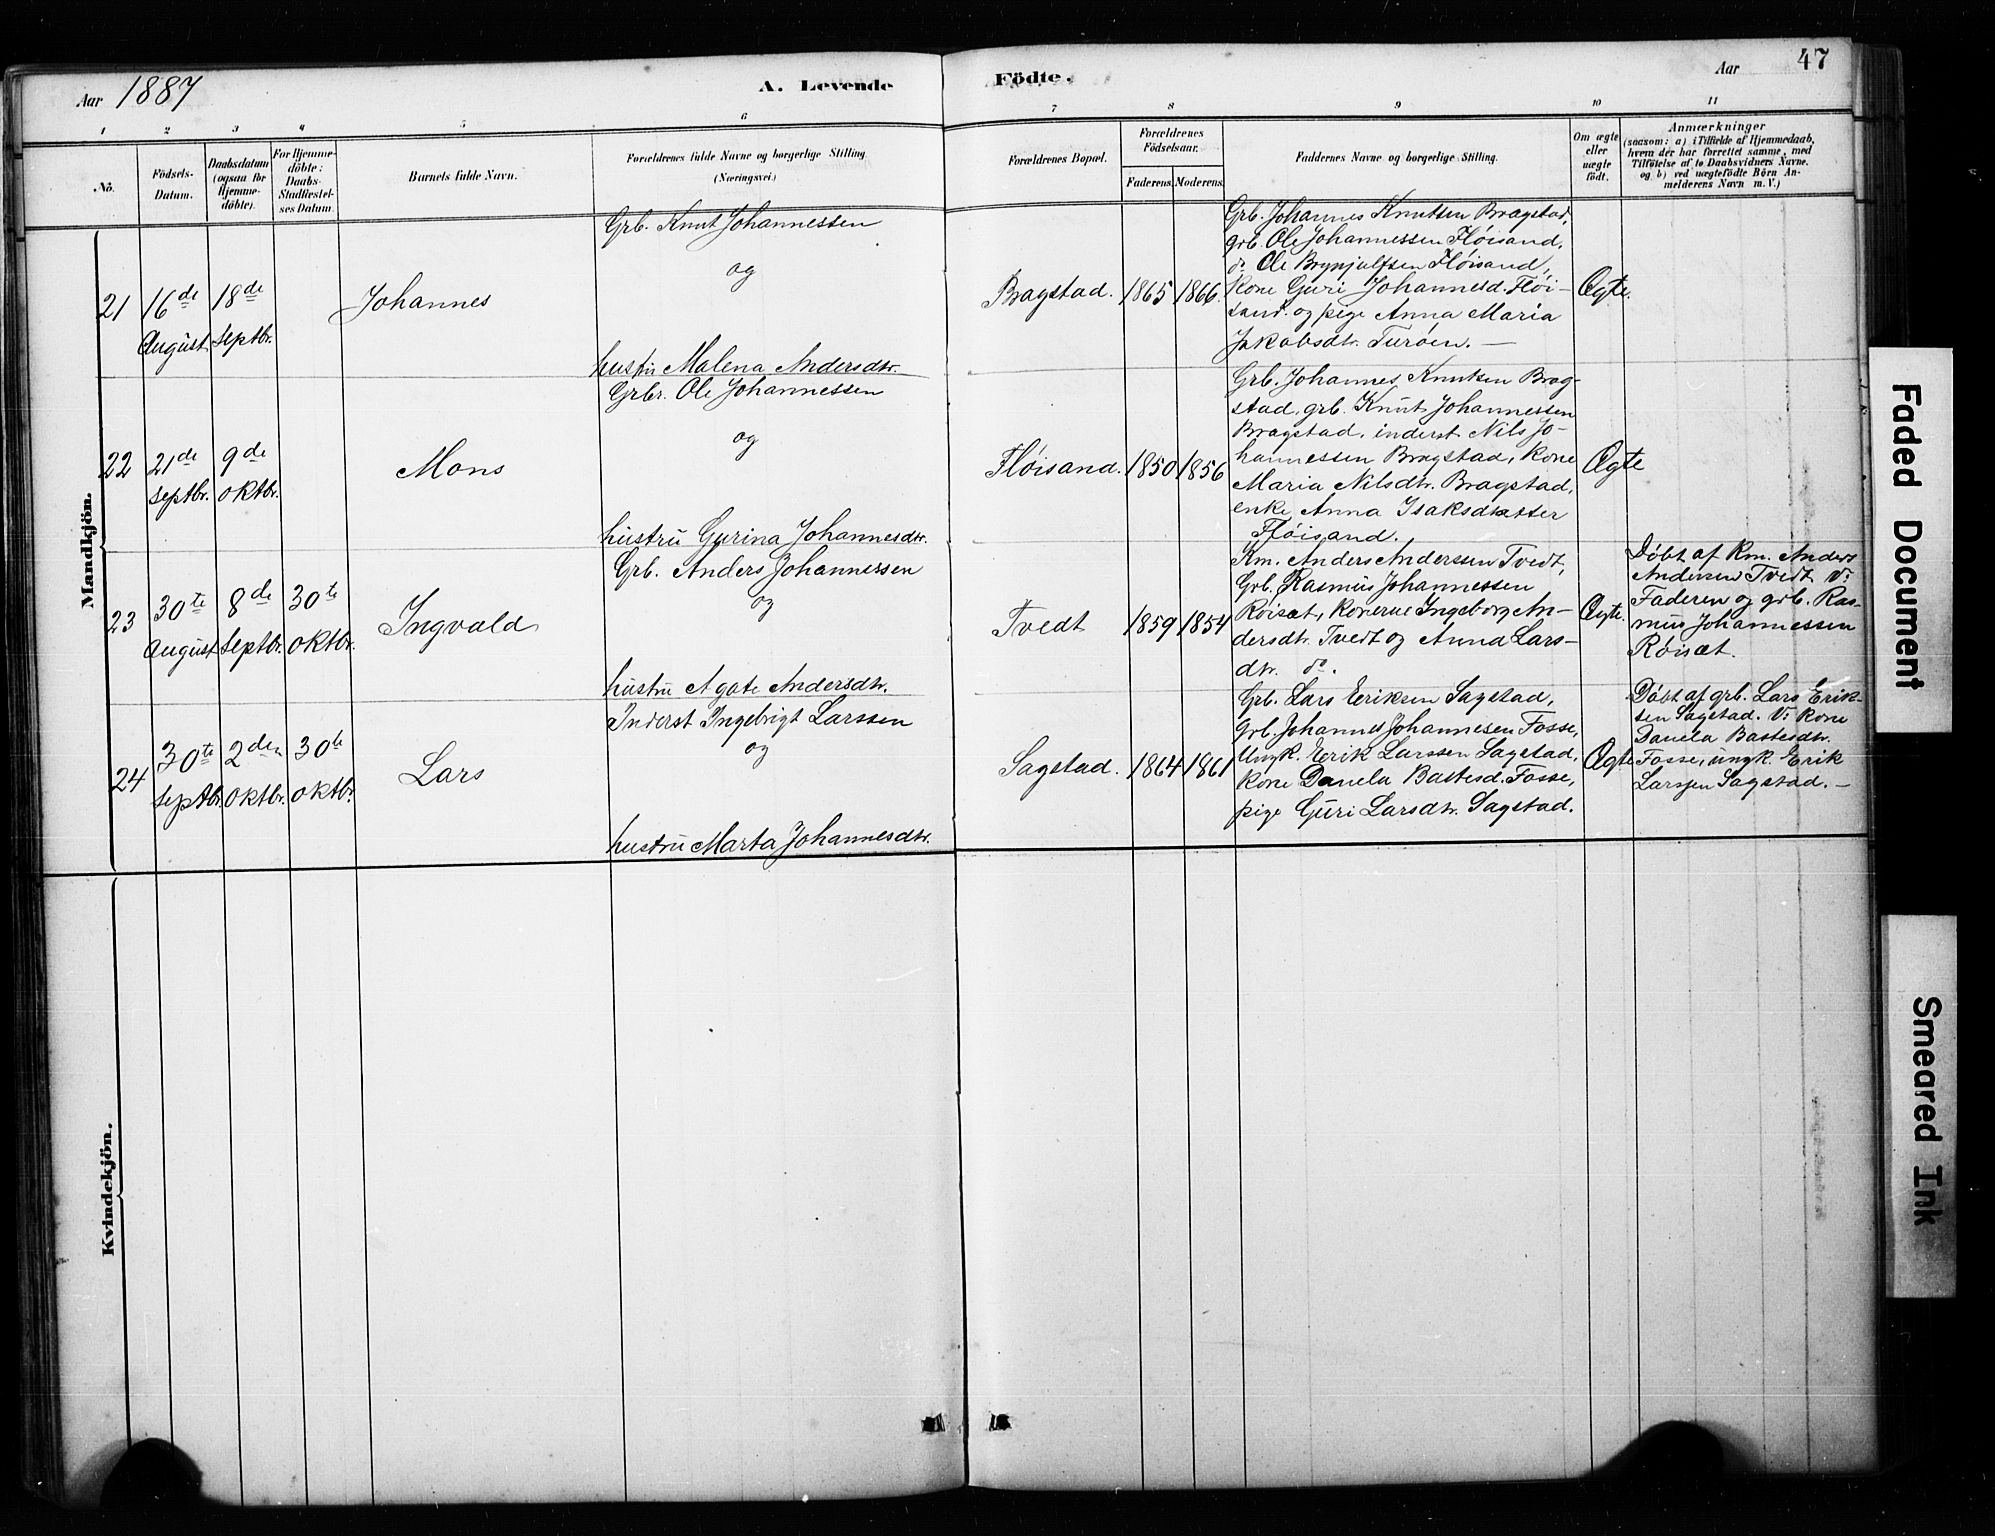 Aar 1887
A. Levende
Födte.
Aar
47
1 2 3 4 5 6 7 8 9 10 11
No.
Födsels-
Datum.
Daabsdatum
(ogsaa for
Hjemme-
döbte).
For Hjemme-
döbte:
Daabs-
Stadfæstel-
ses Datum.
Barnets fulde Navn.
Forældrenes fulde Navne og borgerlige Stilling
(Næringsvei.)
Forældrenes Bopæl.
Forældrenes
Födselsaar.
Faderens.
Moderens.
Faddernes Navne og borgerlige Stilling.
Om ægte
eller
uægte
födt.
Anmærkninger
(saasom: a) i Tilfælde af Hjemmedaab,
hvem der har forrettet samme, med
Tilföielse af to Daabsvidners Navne.
og b) ved uægtefödte Börn An-
melderens Navn m. V.)
Mandkjön.
21
16de
August
18de
Septbr.
Johannes
Grb. Knut Johannessen
og
hustru Malena Andersdtr.
Bragstad.
1865
1866.
Grb. Johannes Knutsen Bragstad,
grb. Ole Johannessen Fløisand,
do. Ole Brynjulfsen Fløisand,
Kone Guri Johannesd. Fløi-
sand. og pige Anna Maria
Jakobsdtr. Turøen. —
Ægte.
22
21de
Septbr.
9de
Oktbr.
Mons
Grbr. Ole Johannessen
og
hustru Gurina Johannesdtr.
Fløisand.
1850
1856
Grb. Johannes Knutsen Brag-
stad, grb. Knut Johannessen
Bragstad, inderst Nils Jo-
hannessen Bragstad, Kone
Maria Nilsdtr. Bragstad,
enke Anna Isaksdatter
Fløisand.
Ægte
23
30te
August
8de
Septbr.
30te
Oktbr.
Ingvald
Grb. Anders Johannessen
og
hustru Agate Andersdtr.
Tvedt
1859
1854
Km. Anders Andersen Tvedt,
Grb. Rasmus Johannessen
Røisæt, Konerne Ingeborg An-
dersdtr. Tvedt og Anna Lars-
dtr. do.
Ægte.
Døbt af Km. Anders
Andersen Tvedt. V:
Faderen og grb. Ras-
mus Johannessen
Røisæt.
24
30te
Septbr.
2den
Oktbr.
30te
Oktbr.
Lars
Inderst Ingebrigt Larssen
og
hustru Marta Johannesdtr.
Sagstad.
1864
1861
Grb. Lars Eriksen Sagstad,
grb. Johannes Johannesen Fosse,
Ungk. Erik Larssen Sagstad,
Kone Danela Bastesd. Fosse,
pige Guri Larsdtr. Sagstad.
Ægte
Døbt af grb. Lars Erik-
sen Sagstad. V: Kone
Danela Bastesdtr.
Fosse, ungk. Erik
Larssen Sagstad. —
Kvindekjön.
Faded Document
Smeared Ink